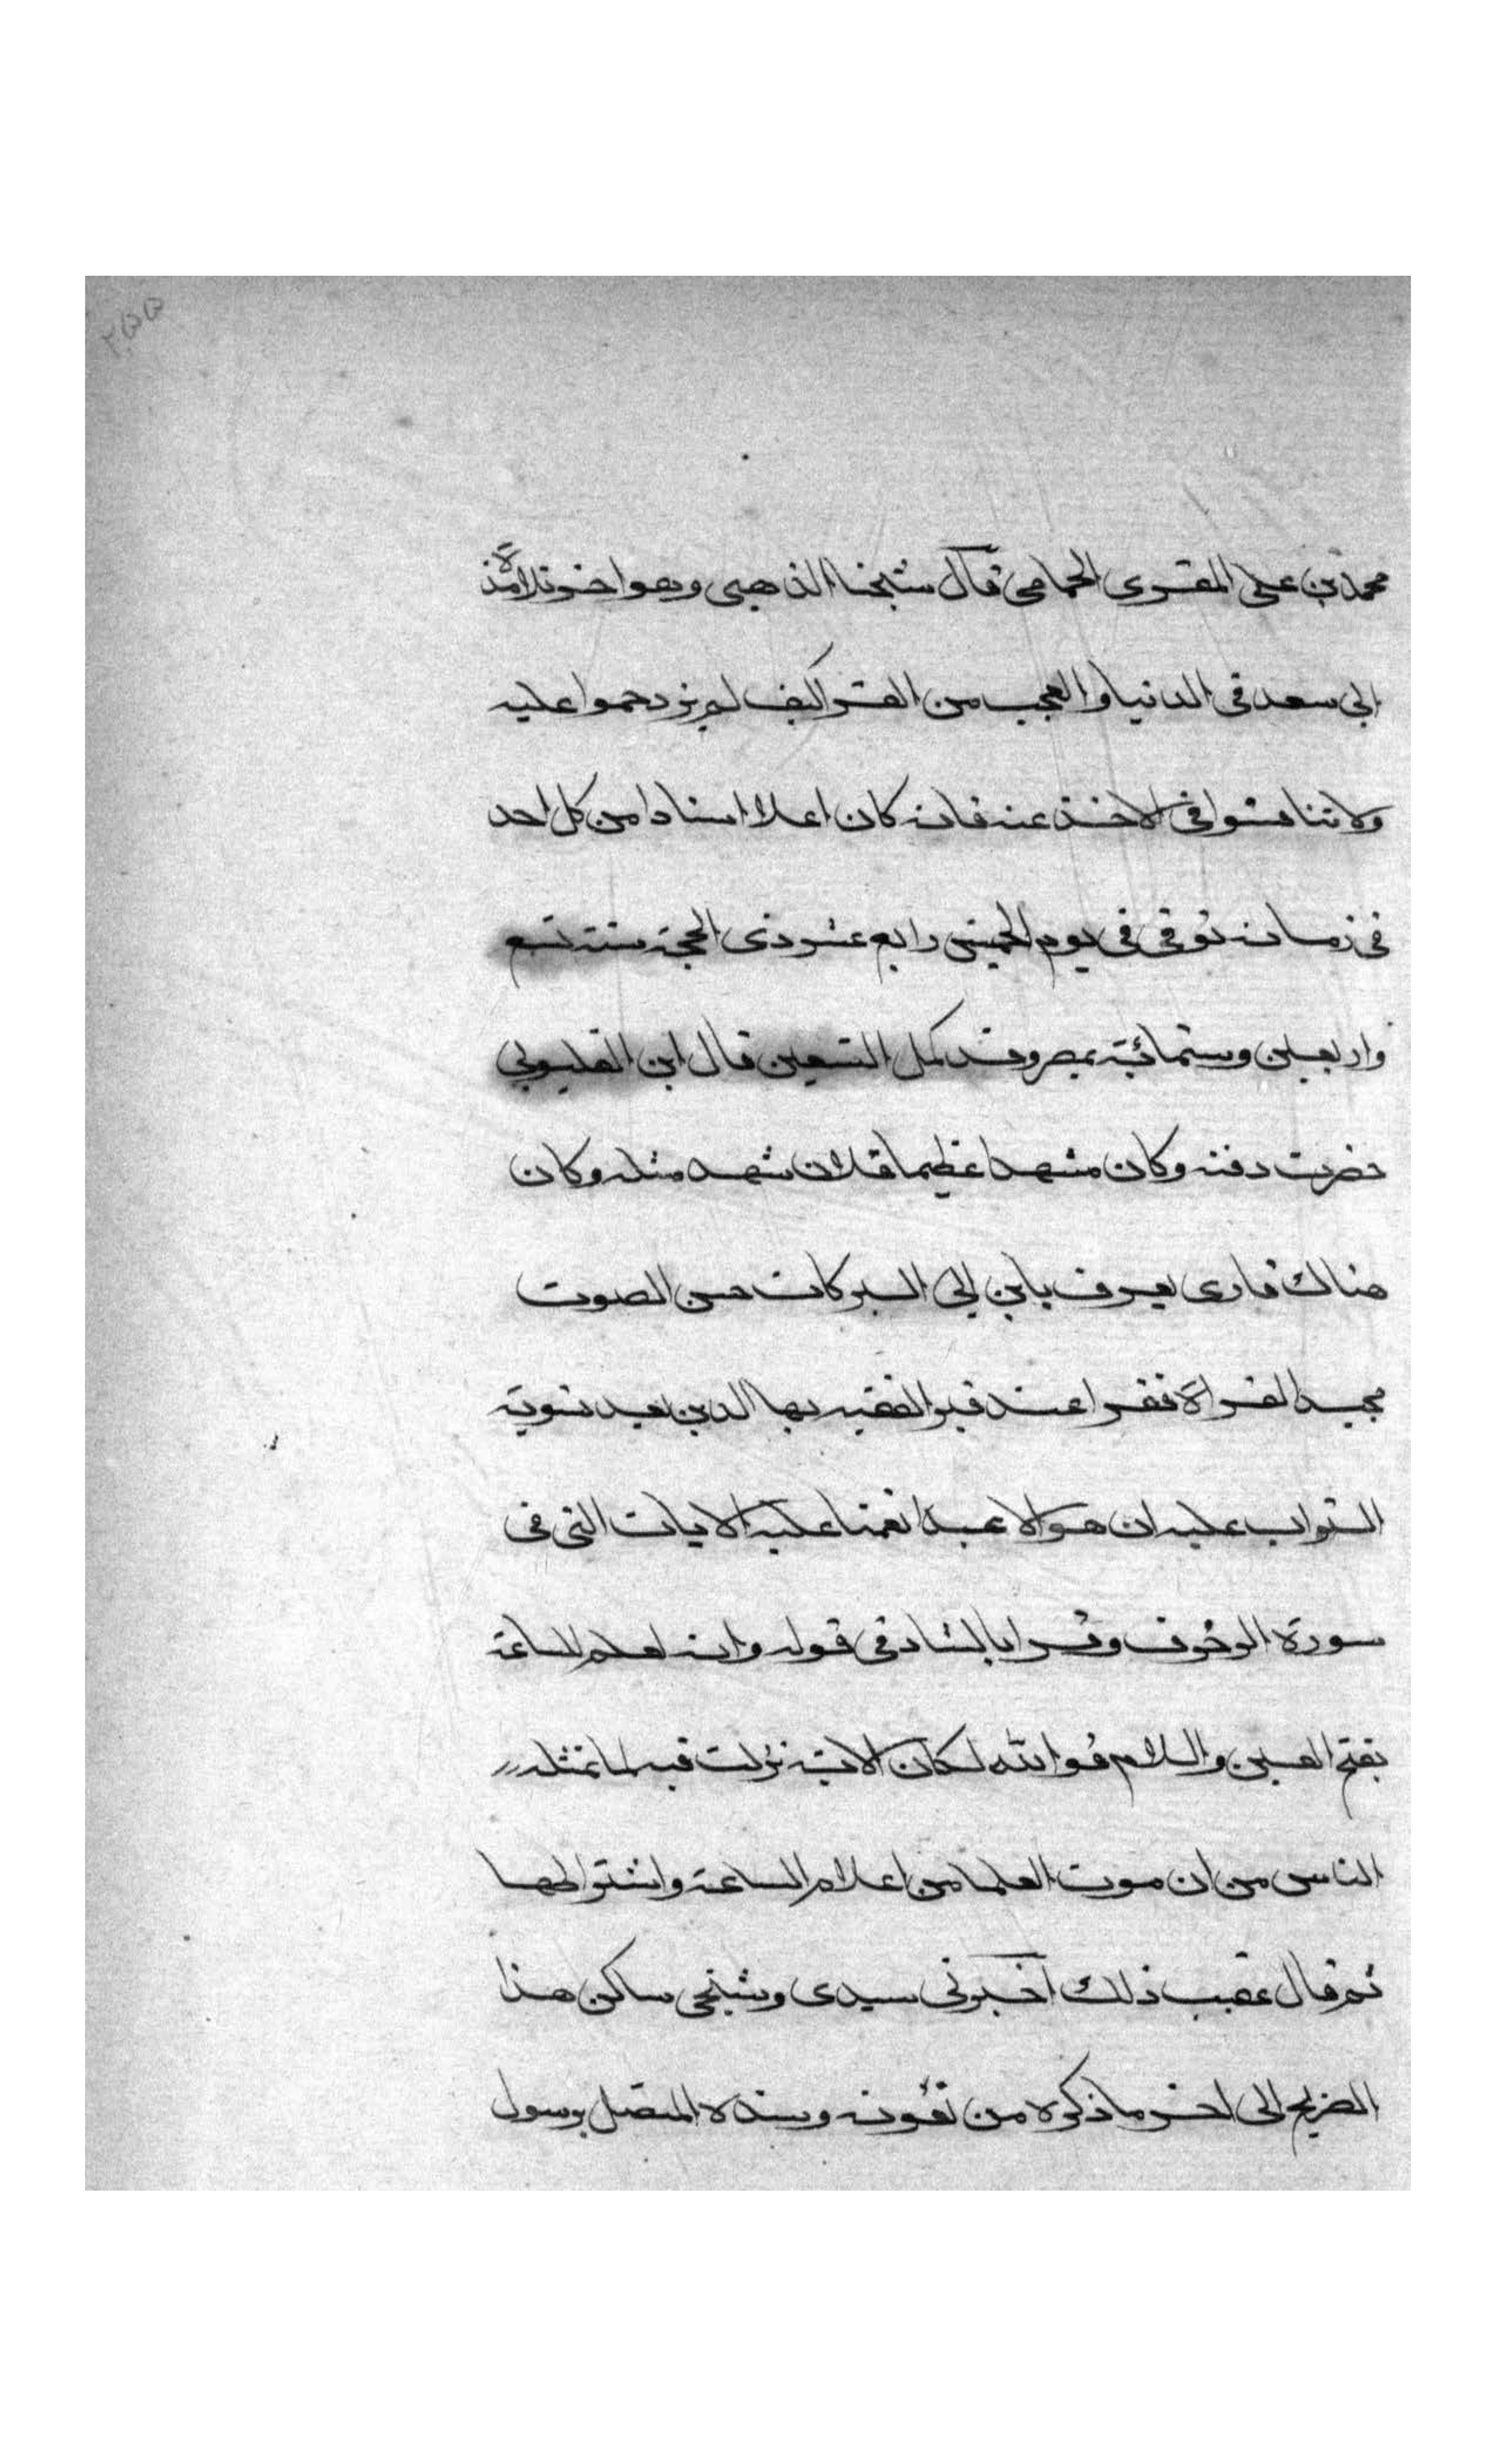 ٢٥٥
محمد بن على المقرى الحمامى قال شيخنا الذهبى وهو اخر تلامذة
ابى سعد فى الدنيا والعجب من القرا كيف لم يزدحموا عليه
ولا تنافسوا فى الاخذ عنه فانه كان اعلا اسنادا من كل احد
فى زمانه توفى فى يوم الخميس رابع عشر ذى الحجة سنة تسع
واربعين وستمائية بمصر وقد كمل التسعين قال ابن القليوبى
حضرت دفنه وكان مشهدا عظيما قل ان شهد مثله وكان
هناك قارى يعرف بابن ابى البركات حسن الصوت
مجيد القراة فقرا عند قبر الفقيه بها الدين بعد تسوية
التراب عليه ان هو الا عبد انعمنا عليه الايات التى فى
سورة الزخرف وقرا بالشاد فى قوله وانه لعلم للساعة
بفتح العين واللام فوالله لكان الاية نزلت فيه لما تمثله
الناس من ان موت العلما من اعلام الساعة واشتراطها
ثم قال عقيب ذلك اخبرنى سيدى وشيخى ساكن هذا
الضريح الى اخر ما ذكره من نعوته وسنده المتصل برسول